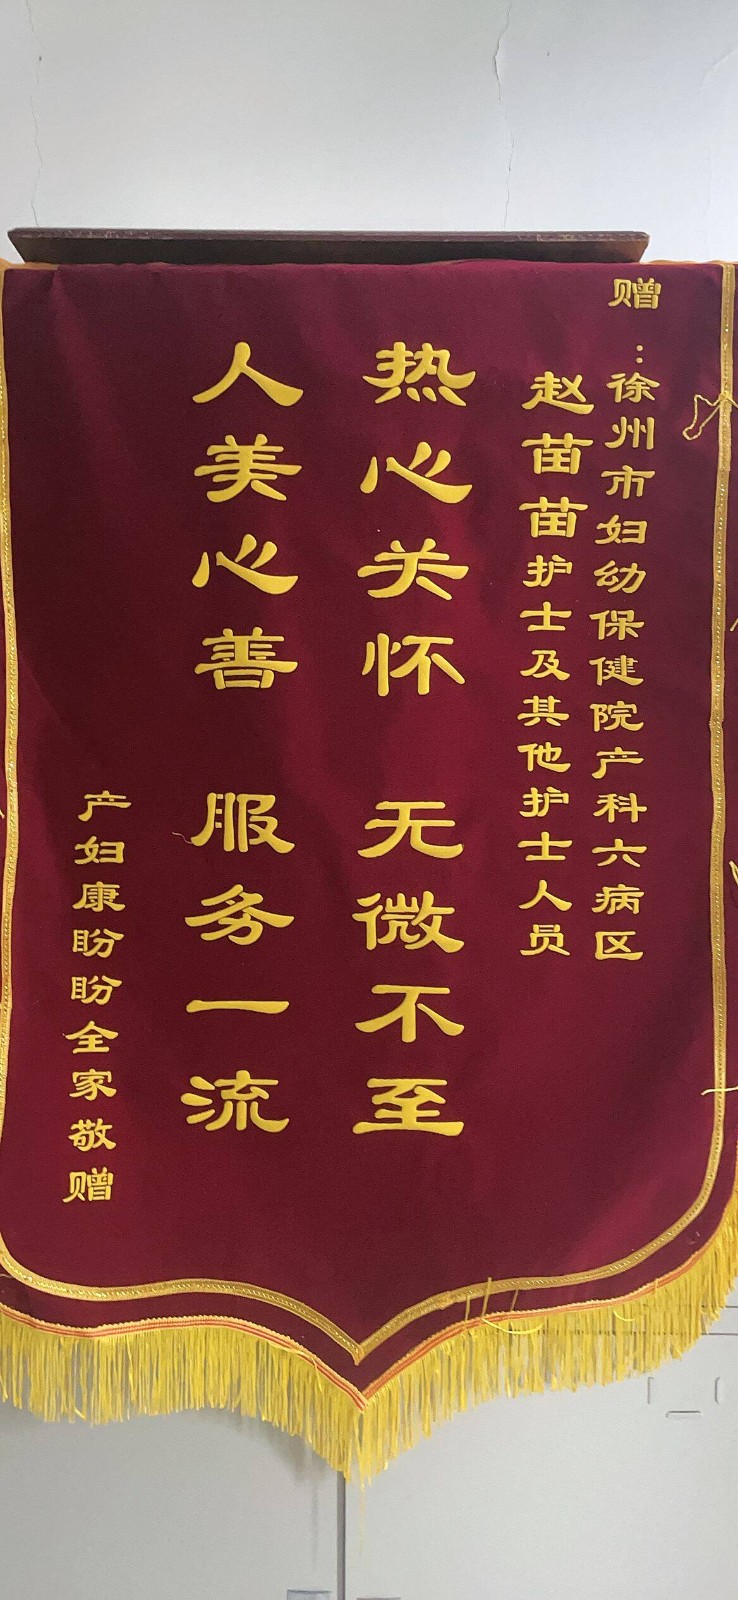 赠：徐州市妇幼保健院产科六病区
赵苗苗护士及其他护士人员
热心关怀 无微不至
人美心善 服务一流
产妇康盼盼全家敬赠